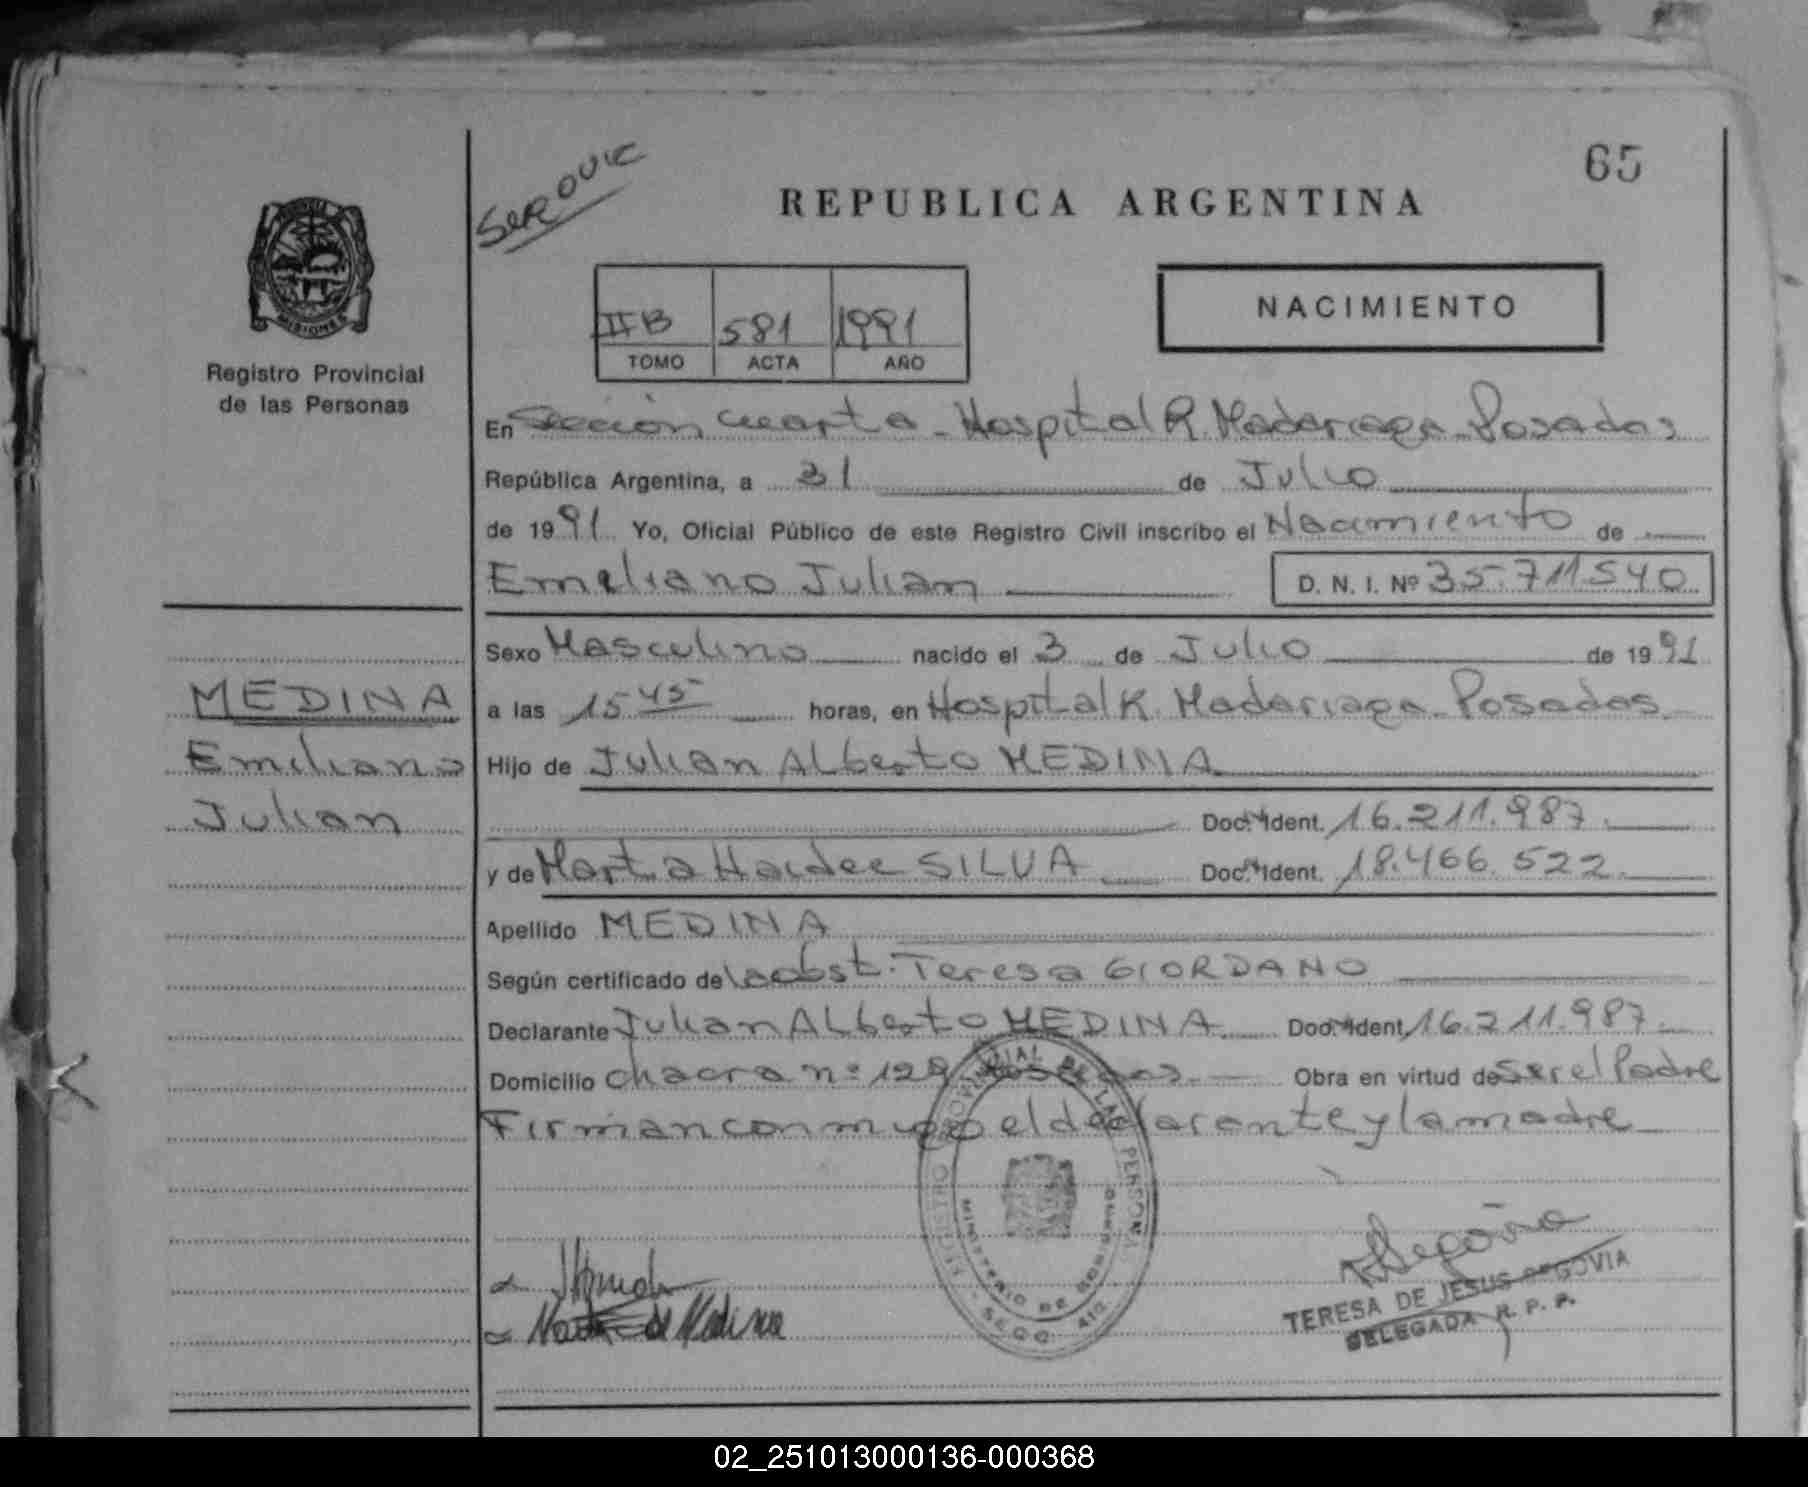 65
SEROVIC
REPUBLICA ARGENTINA
MISIONES
Registro Provincial
de las Personas
IIB 581 1991
TOMO ACTA AÑO
NACIMIENTO
En Sección cuarta - Hospital R. Madariaga - Posadas
República Argentina, a 31 de Julio
de 1991 Yo, Oficial Público de este Registro Civil inscribo el Nacimiento de
Emeliano Julian D. N. I. Nº 35.711.540
Sexo Masculino nacido el 3 de Julio de 1991
a las 15 45 horas, en Hospital R. Madariaga - Posadas
Hijo de Julian Alberto MEDINA
Doc. Ident. 16.211.987.
y de Marta Haidee SILVA Doc. Ident. 18.466.522.
Apellido MEDINA
Según certificado de la obst. Teresa GIORDANO
Declarante Julian Alberto MEDINA Doc. Ident. 16.211.987.
Domicilio chacra nº 129 Posadas. Obra en virtud de ser el Padre
Firman conmigo el declarante y la madre
MEDINA
Emiliano
Julian
REGISTRO PROVINCIAL DE LAS PERSONAS
MINISTERIO DE GOBIERNO
SECC. 4ta
de Medina
TERESA DE JESUS SEGOVIA
DELEGADA R. P. P.
02_251013000136-000368